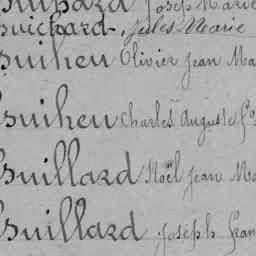 Joseph Marie
Guichard Jules Marie
Guiheu Olivier Jean Ma
Guiheu Charles Auguste
Guillard Noël Jean Ma
Guillard Joseph Fran